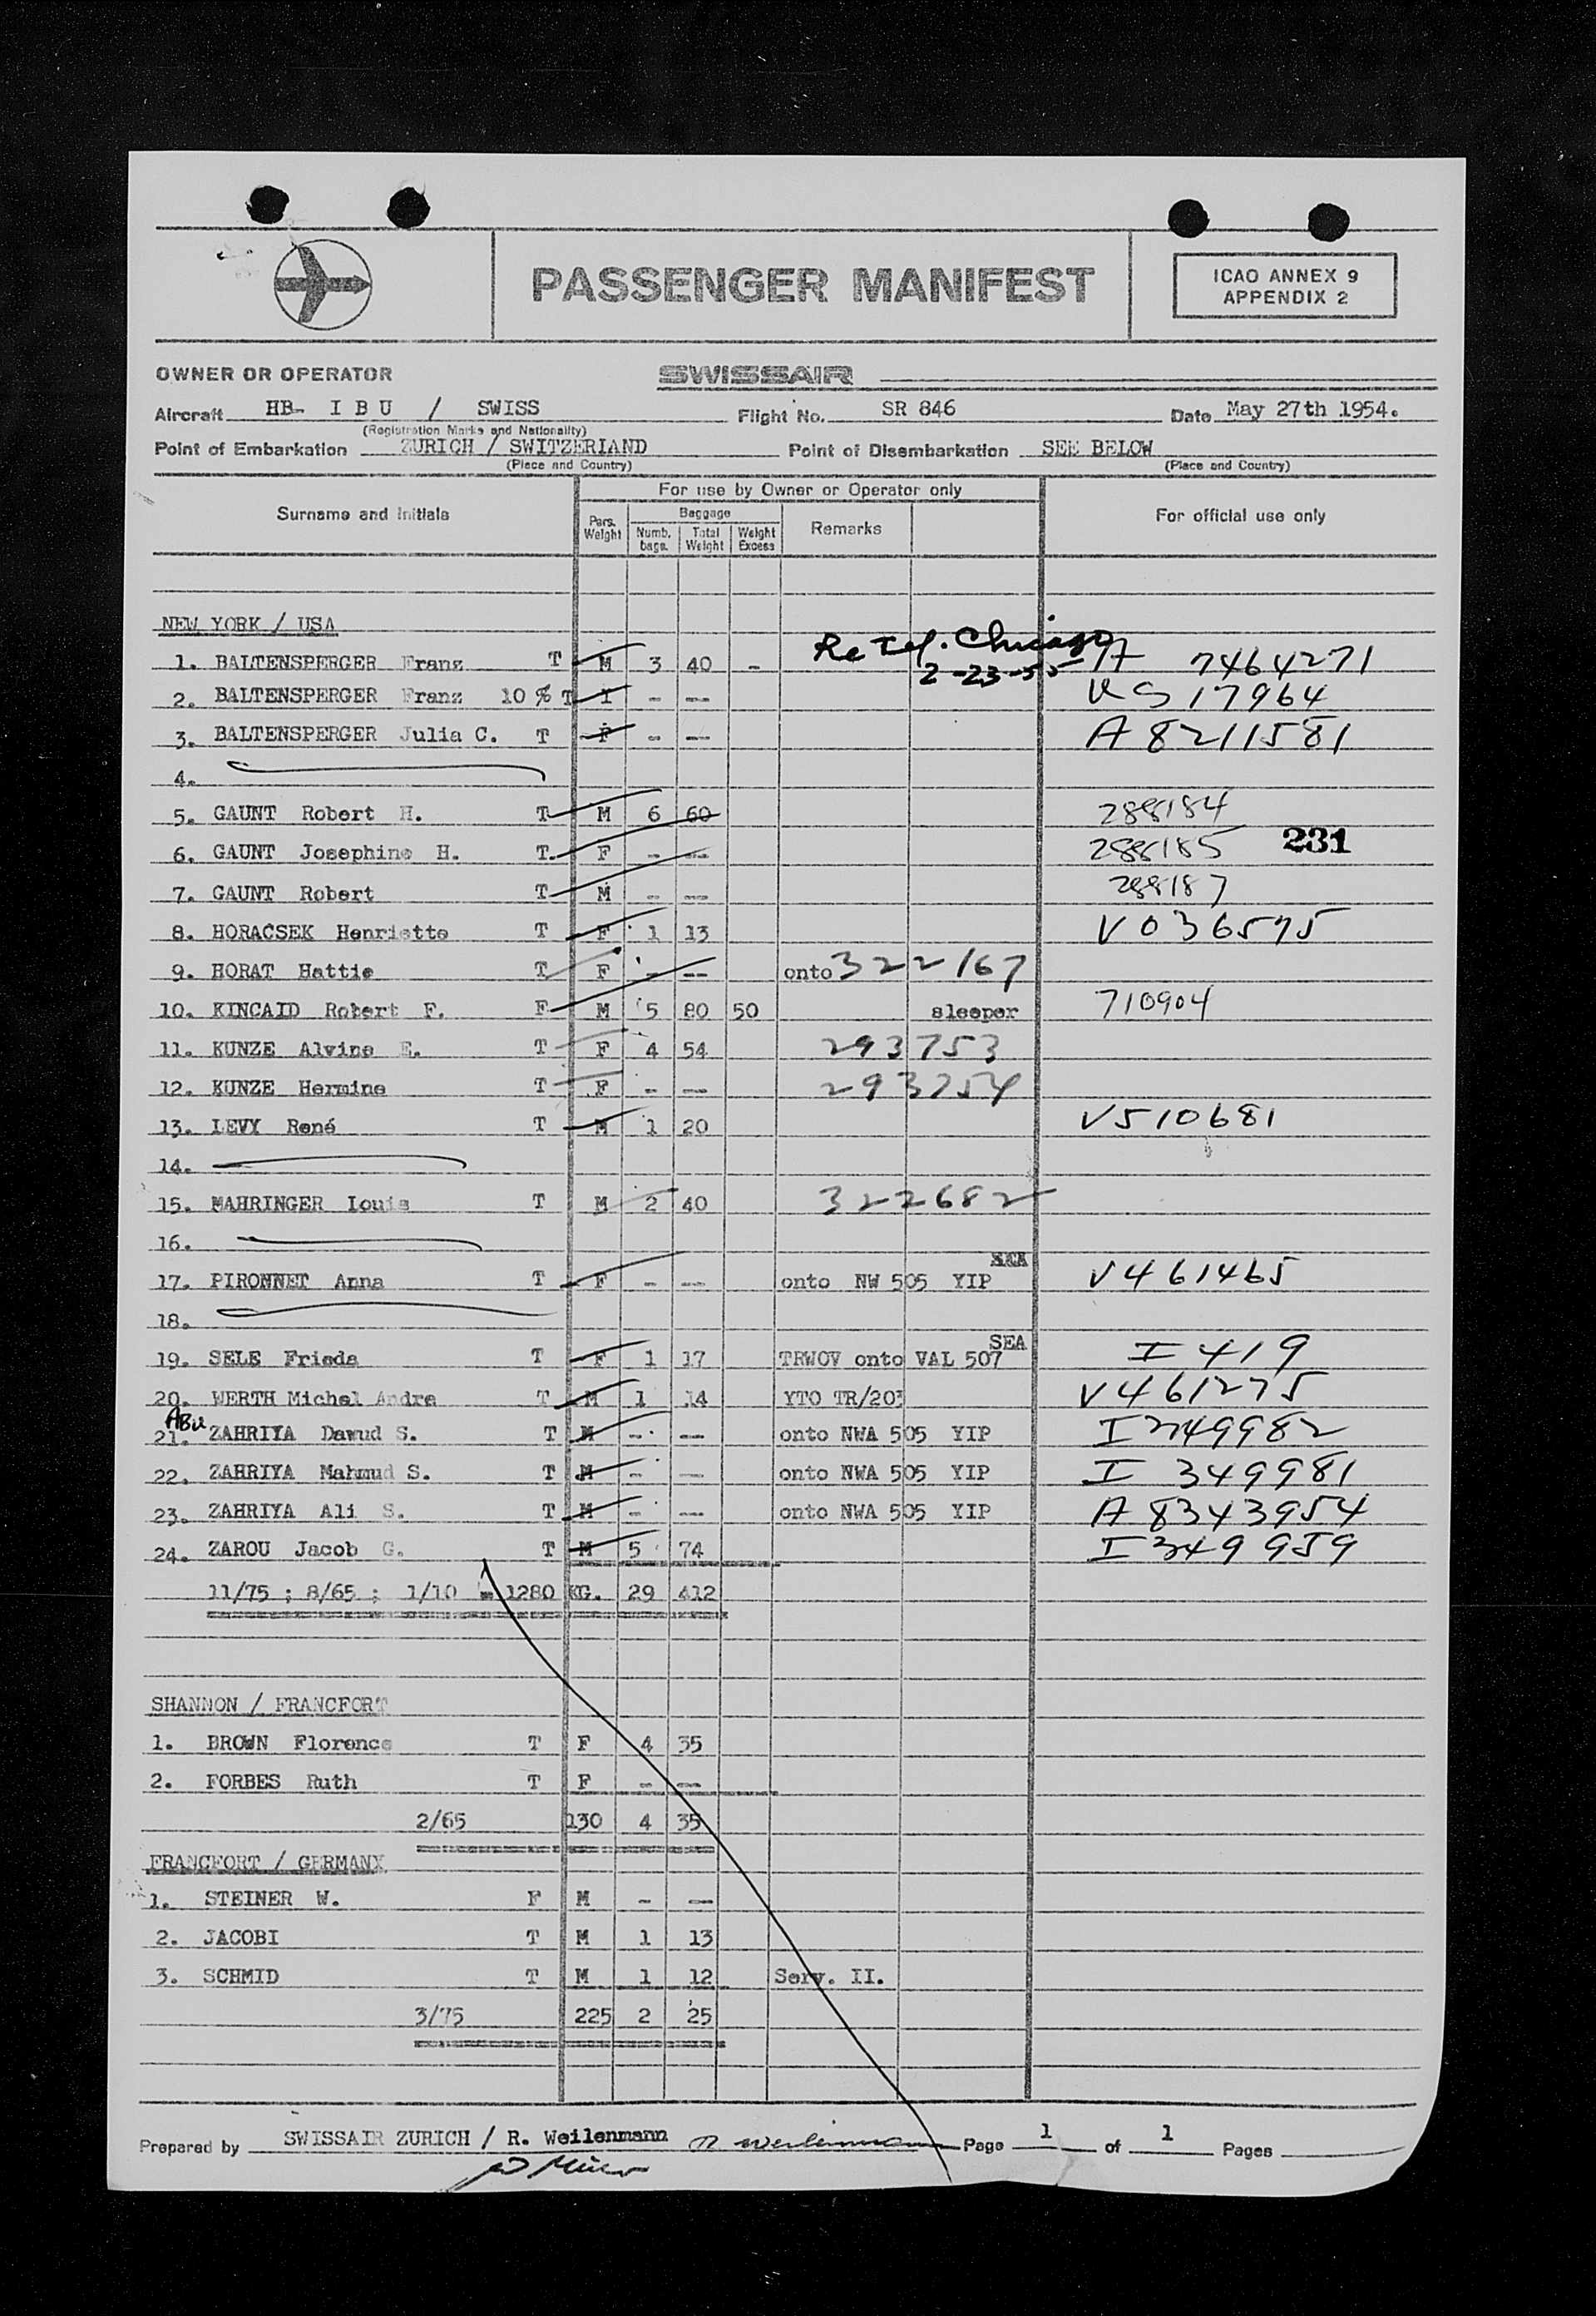 PASSENGER MANIFEST
ICAO ANNEX 9
APPENDIX 2
OWNER OR OPERATOR SWISSAIR
Aircraft HB- I B U / SWISS Flight No. SR 846 Date May 27th 1954.
(Registration Marks and Nationality)
Point of Embarkation ZURICH / SWITZERLAND Point of Disembarkation SEE BELOW
(Place and Country) (Place and Country)
Surname and Initials For use by Owner or Operator only For official use only
Pers. Weight Baggage Numb. bags. Total Weight Weight Excess Remarks
NEW YORK / USA
Re Tel. Chicago
1. BALTENSPERGER Franz T M 3 40 - 2-23-55 A 7464271
2. BALTENSPERGER Franz 10 % T I - -- 17964
3. BALTENSPERGER Julia C. T F - -- A 8211581
4.
5. GAUNT Robert H. T M 6 60 288184
6. GAUNT Josephine H. T F - -- 288185 231
7. GAUNT Robert T M - -- 288187
8. HORACSEK Henriette T F 1 13 V 036575
9. HORAT Hattie T F - -- onto 322167
10. KINCAID Robert F. F M 5 80 50 sleeper 710904
11. KUNZE Alvine E. T F 4 54 293753
12. KUNZE Hermine T F - -- 293754
13. LEVY René T M 1 20 V510681
14.
15. MAHRINGER Louis T M 2 40 322682
16.
17. PIRONNET Anna T F - -- onto NW 505 YIP V461465
18.
SEA
19. SELE Frieda T F 1 17 TRWOV onto VAL 507 I 419
20. WERTH Michel Andre T M 1 14 YTO TR/203 V461275
ABU
21. ZAHRIYA Dawud S. T M - -- onto NWA 505 YIP I349982
22. ZAHRIYA Mahmud S. T M - -- onto NWA 505 YIP I 349981
23. ZAHRIYA Ali S. T M - -- onto NWA 505 YIP A 8343954
24. ZAROU Jacob G. T M 5 74 I349959
11/75 ; 8/65 ; 1/10 = 1280 KG. 29 412
SHANNON / FRANCFORT
1. BROWN Florence T F 4 35
2. FORBES Ruth T F - --
2/65 130 4 35
FRANCFORT / GERMANY
1. STEINER W. F M - --
2. JACOBI T M 1 13
3. SCHMID T M 1 12 Serv. II.
3/75 225 2 25
Prepared by SWISSAIR ZURICH / R. Weilenmann R Weilenmann Page 1 of 1 Pages